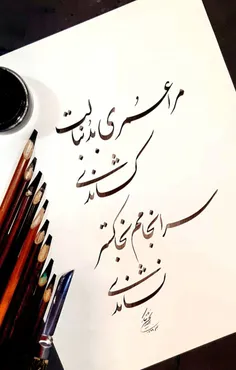 مرا عمری بدنبالت
کشاندی
سرانجامم بخاکستر
نشاندی